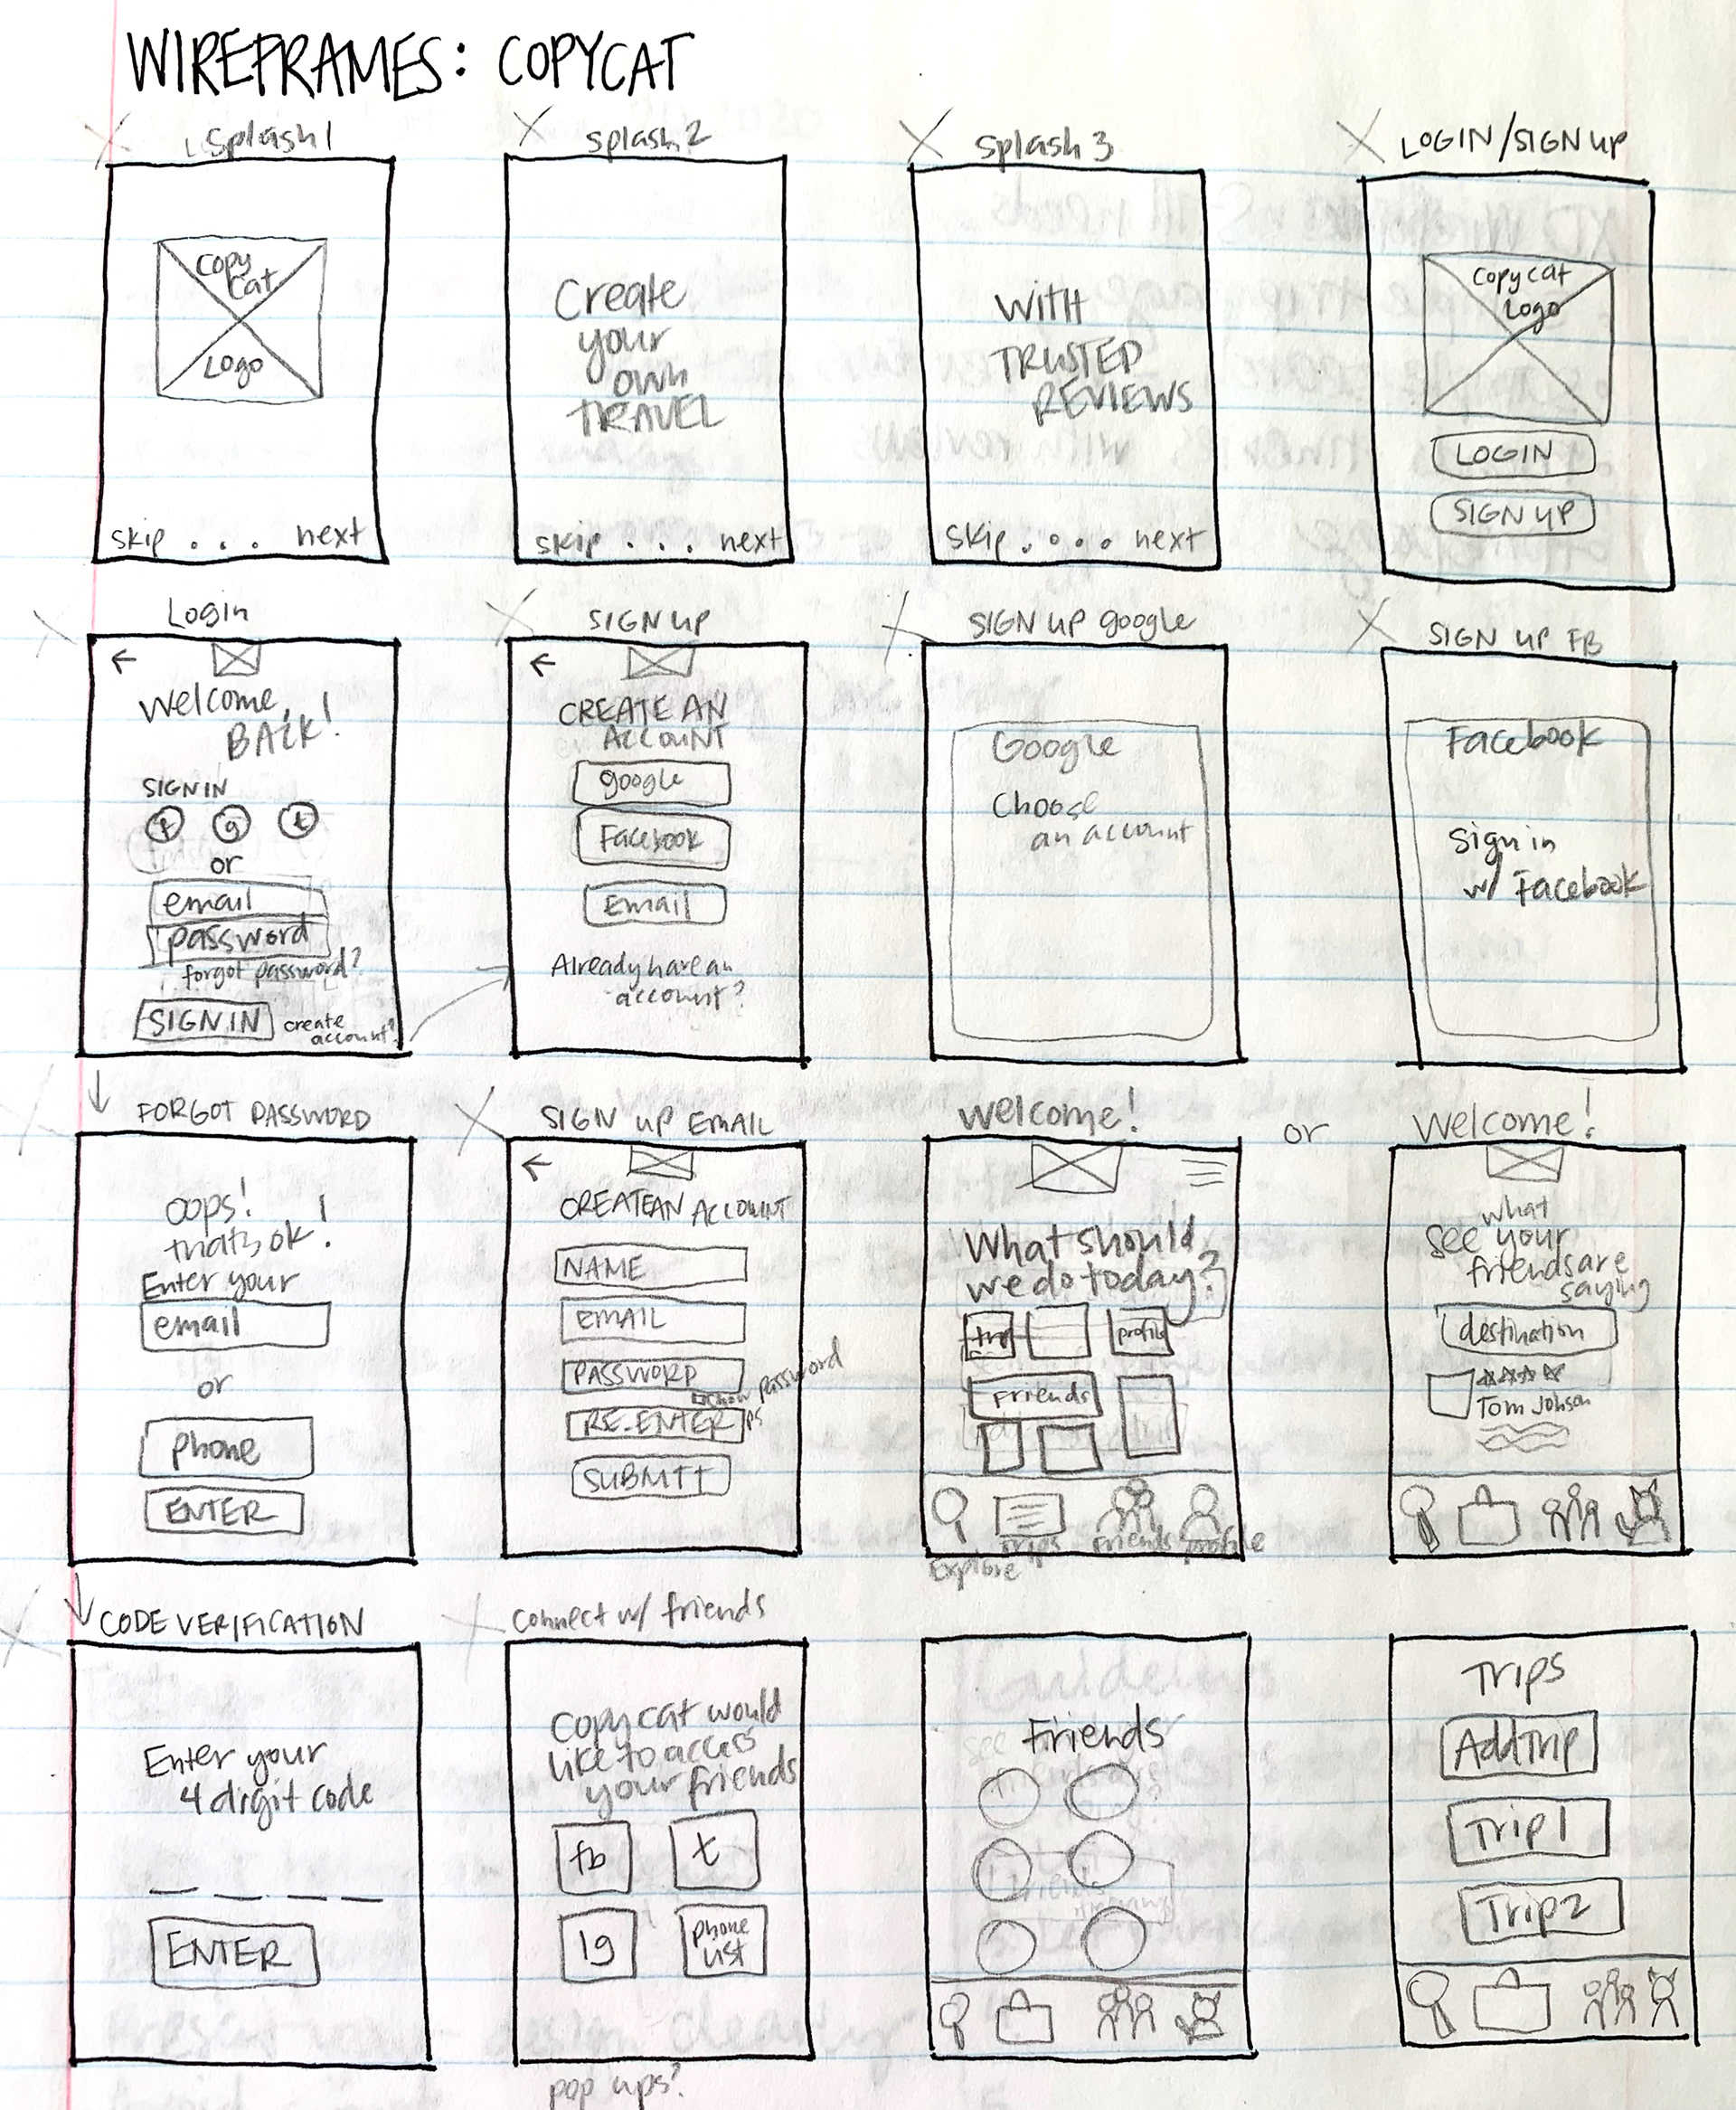 WIREFRAMES: COPYCAT
Splash 1
Copy
Cat
Logo
skip . . . next
Splash 2
Create
your
own
TRAVEL
skip . . . next
Splash 3
WITH
TRUSTED
REVIEWS
skip . . . . next
LOGIN/SIGN UP
Copycat
Logo
LOGIN
SIGN UP
Login
←
Welcome,
BACK!
SIGN IN
f g t
or
email
password
forgot password?
SIGN IN
create
account?
SIGN UP
←
CREATE AN
ACCOUNT
google
Facebook
Email
Already have an
account?
SIGN UP google
Google
Choose
an account
SIGN UP FB
Facebook
Sign in
w/ Facebook
FORGOT PASSWORD
oops!
thats ok!
Enter your
email
or
phone
ENTER
SIGN UP EMAIL
←
CREATE AN ACCOUNT
NAME
EMAIL
PASSWORD
show password
RE-ENTER ps
SUBMIT
Welcome!
What should
we do today?
trip
profile
Friends
Explore
Trips
Friends
profile
or
Welcome!
what
see your
friends are
saying
destination
Tom Johson
CODE VERIFICATION
Enter your
4 digit code
ENTER
Connect w/ friends
Copycat would
like to access
your friends
fb t
Ig
phone
LIST
pop ups?
Friends
Trips
Add Trip
Trip 1
Trip 2